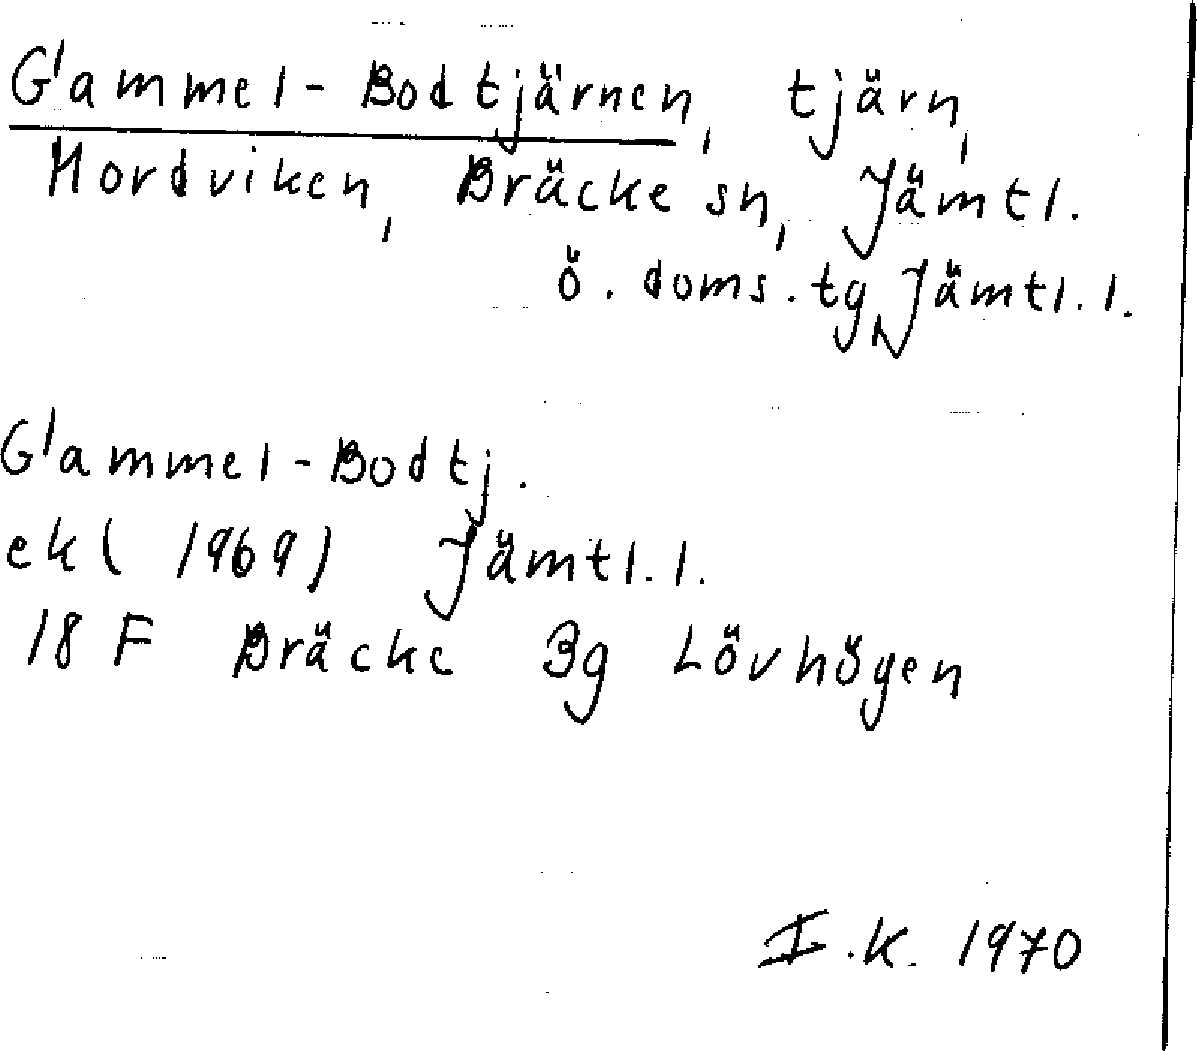 Gammel-Bodtjärnen, tjärn,
Mordviken, Bräcke sn, Jämtl.
ö. doms.tg, Jämtl.l.
Gammel-Bodtj.
ek( 1969) Jämtl.l.
18 F Bräcke 3g Lövhögen
I.K. 1970